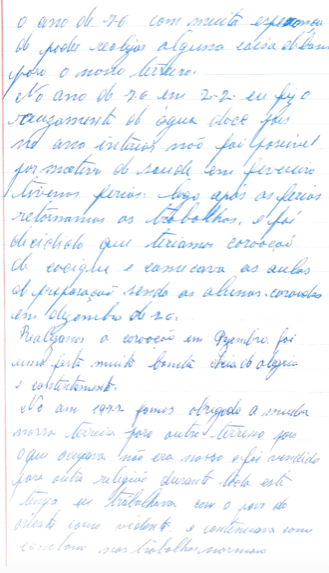 o ano de 76 com muita esperança
de poder realizar alguma coisa de bom
para o nosso terreiro.
No ano de 76 em 2-2- eu fiz o
cruzamento de água doce pois
no ano interior não foi possivel
por motivo de saude em fevereiro
tivemos ferias. logo após as ferias
retornamos os trabalhos, e foi
decidido que teriamos coroação
de cacique e comecava as aulas
de preparação sendo os alunos coroados
em dezembro de 76.
Realizamos a coroação em Dzembro foi
uma festa muito bonita cheia de alegria
e contentamento.
No ano 1977 fomos obrigado a mudar
nosso terreiro para outro terreno pois
o que ocupava não era nosso e foi vendido
para outra religião durante todo este
tempo eu trabalhava com o povo do
oriente como vidente e continuava como
nos trabalhos normais